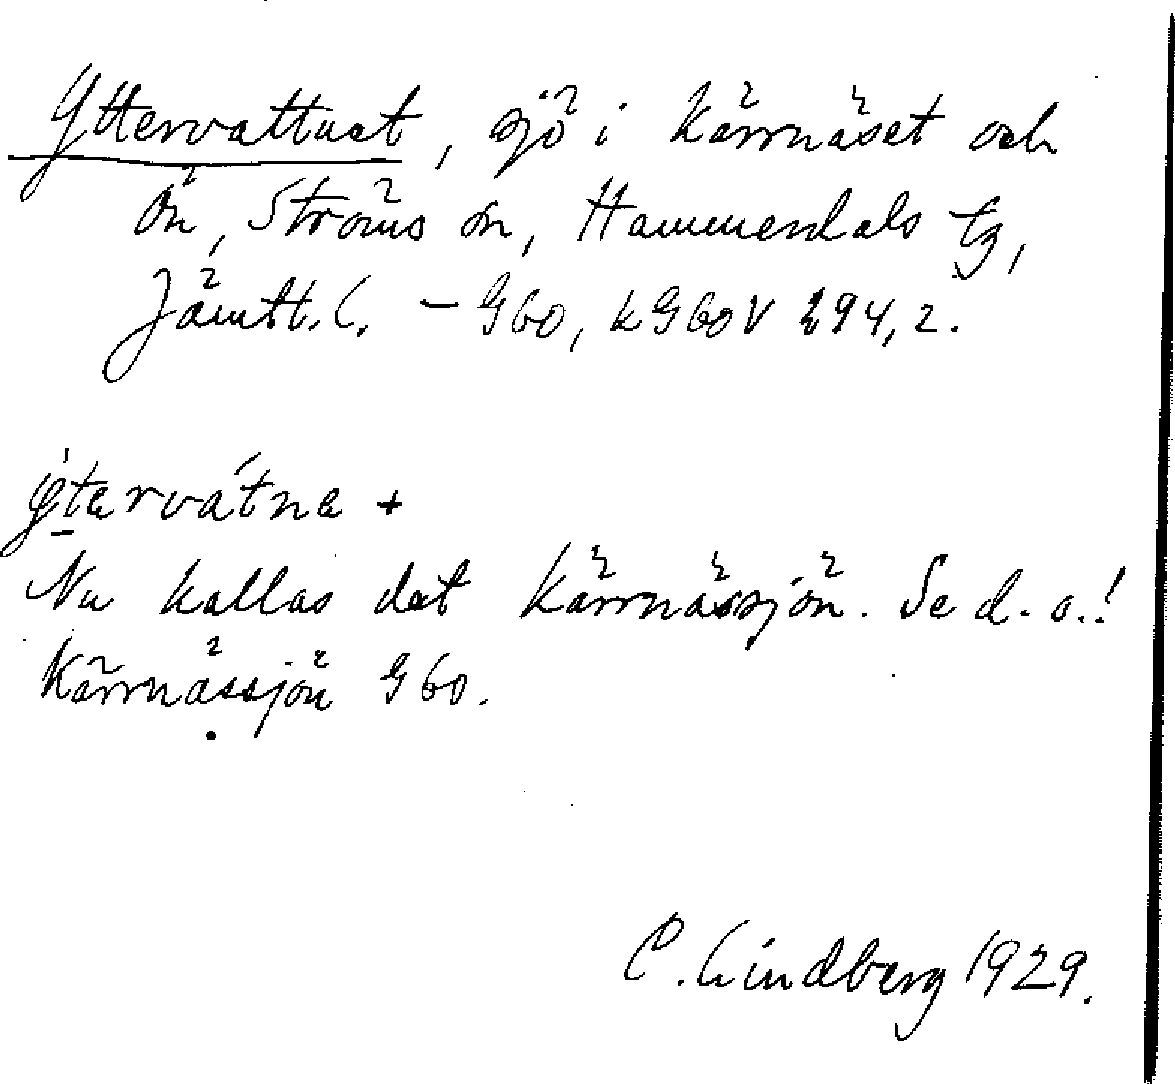 Yttervattnet, sjö i Kärrnäset och
Ön, Ströms sn, Hammerdals tg,
Jämtl. l. – Gbo, kGboV 294, 2.
ýtervátne +
Nu kallas det Kärrnässjön. Se d. o.!
Kärrnässjön Gbo.
C. Lindberg 1929.